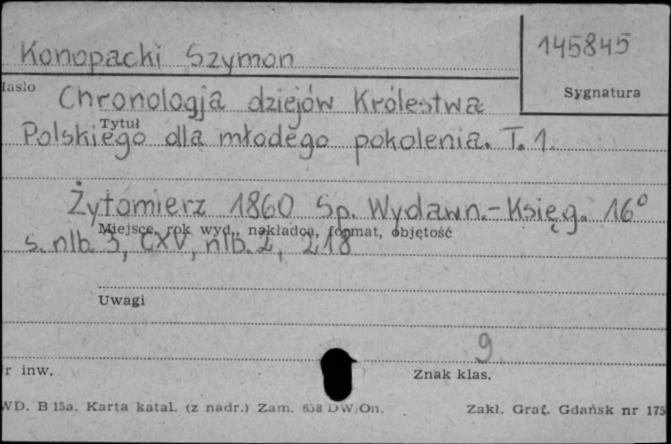 Konopacki Szymon
145845
Hasło
Sygnatura
Chronologja dziejów Królestwa
Tytuł
Polskiego dla młodego pokolenia. T. 1.
Żytomierz 1860 Sp. Wydawn.-Księg. 16°
Miejsce, rok wyd., nakładca, format, objętość
s. nlb. 3, CXV, nlb. 2, 218
Uwagi
9
r inw.
Znak klas.
WD. B 15a. Karta katal. (z nadr.) Zam. 638 DW/On.
Zakł. Graf. Gdańsk nr 175